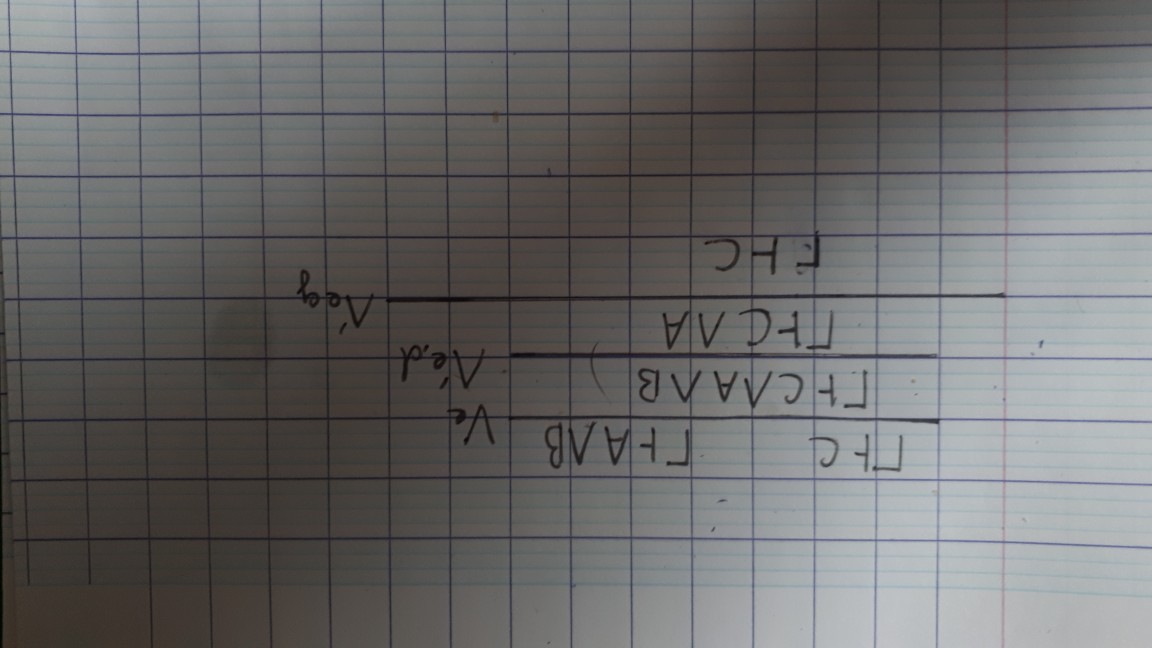 Γ⊢C Γ⊢A∧B
∧e
Γ⊢C∧A∧B
∧e,d
Γ⊢C∧A
∧e,g
Γ⊢C